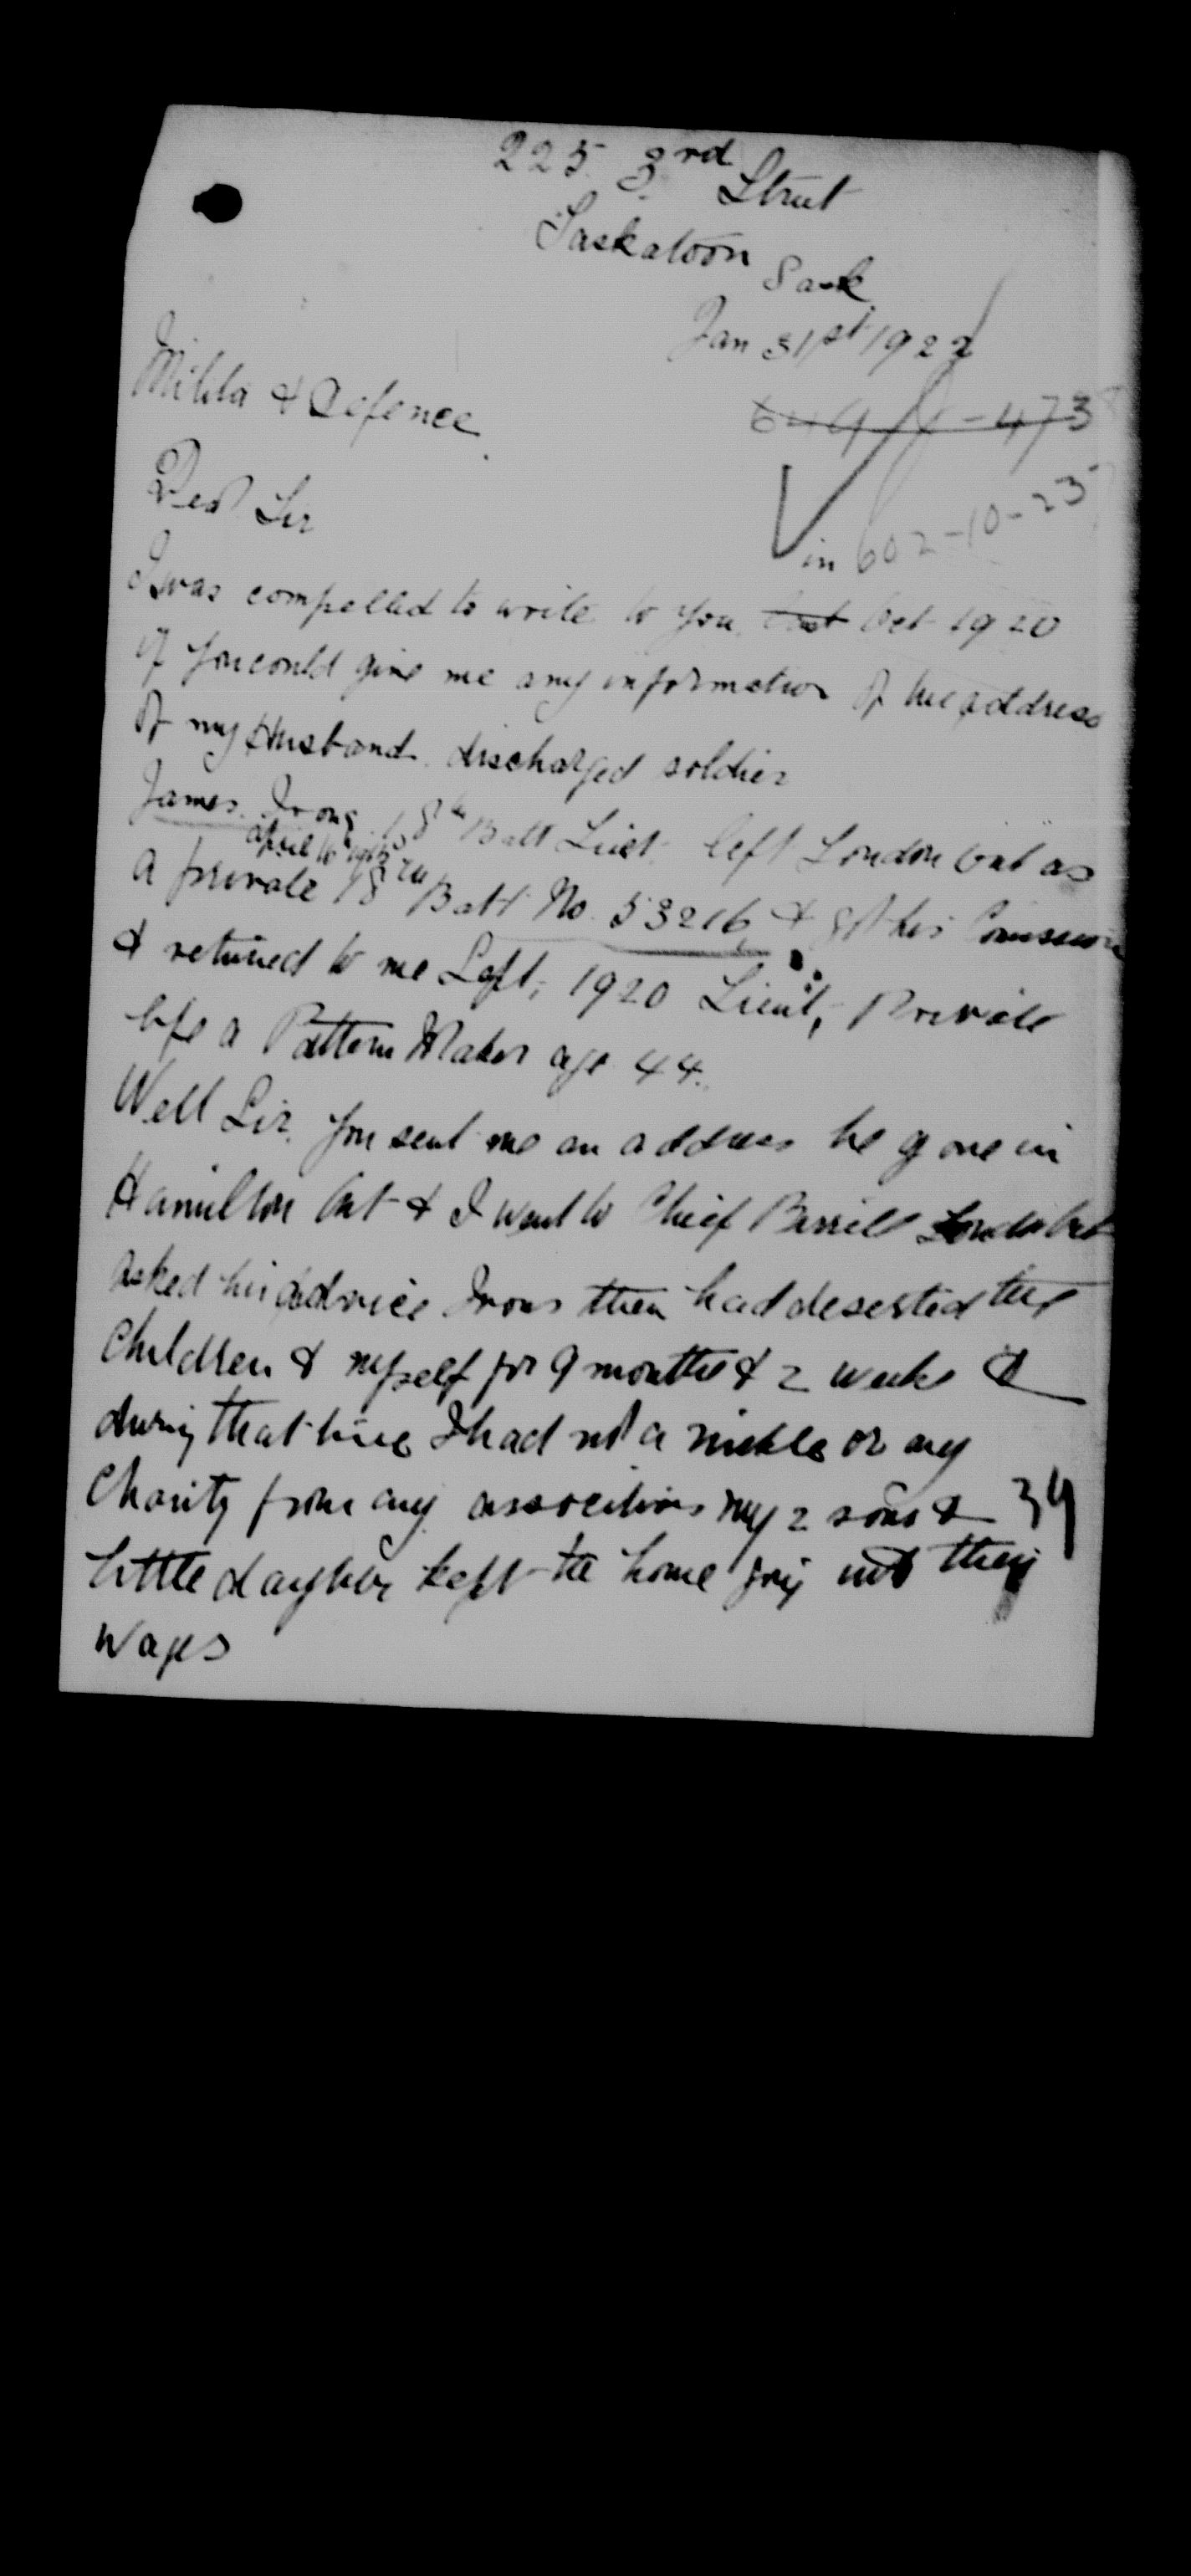 225. 3rd Street
Saskatoon Sask
Jan 31st 1922
Militia & Defence.
649 - 473
Dear Sir
in 602-10-23
I was compelled to write to you Oct 1920
if you could give me any information of the address
of my Husband. discharged soldier
James. Irons 18th Batt Liet. left London Ont as
april 16 1915
a private 18th Batt No. 53216 & got his
& retuned to me Sept, 1920 Lieut, Private
life a Pattern Maker age 44.
Well Sir. you sent me an address he gave in
Hamilton Ont & I went to Chief Birrell London Ont
asked his advice Irons then had deserted the
Children & myself for 9 months & 2 weeks &
during that time I had not a nickle or any
Charity from any my 2 sons & 34
little daughter kept the home their
wages